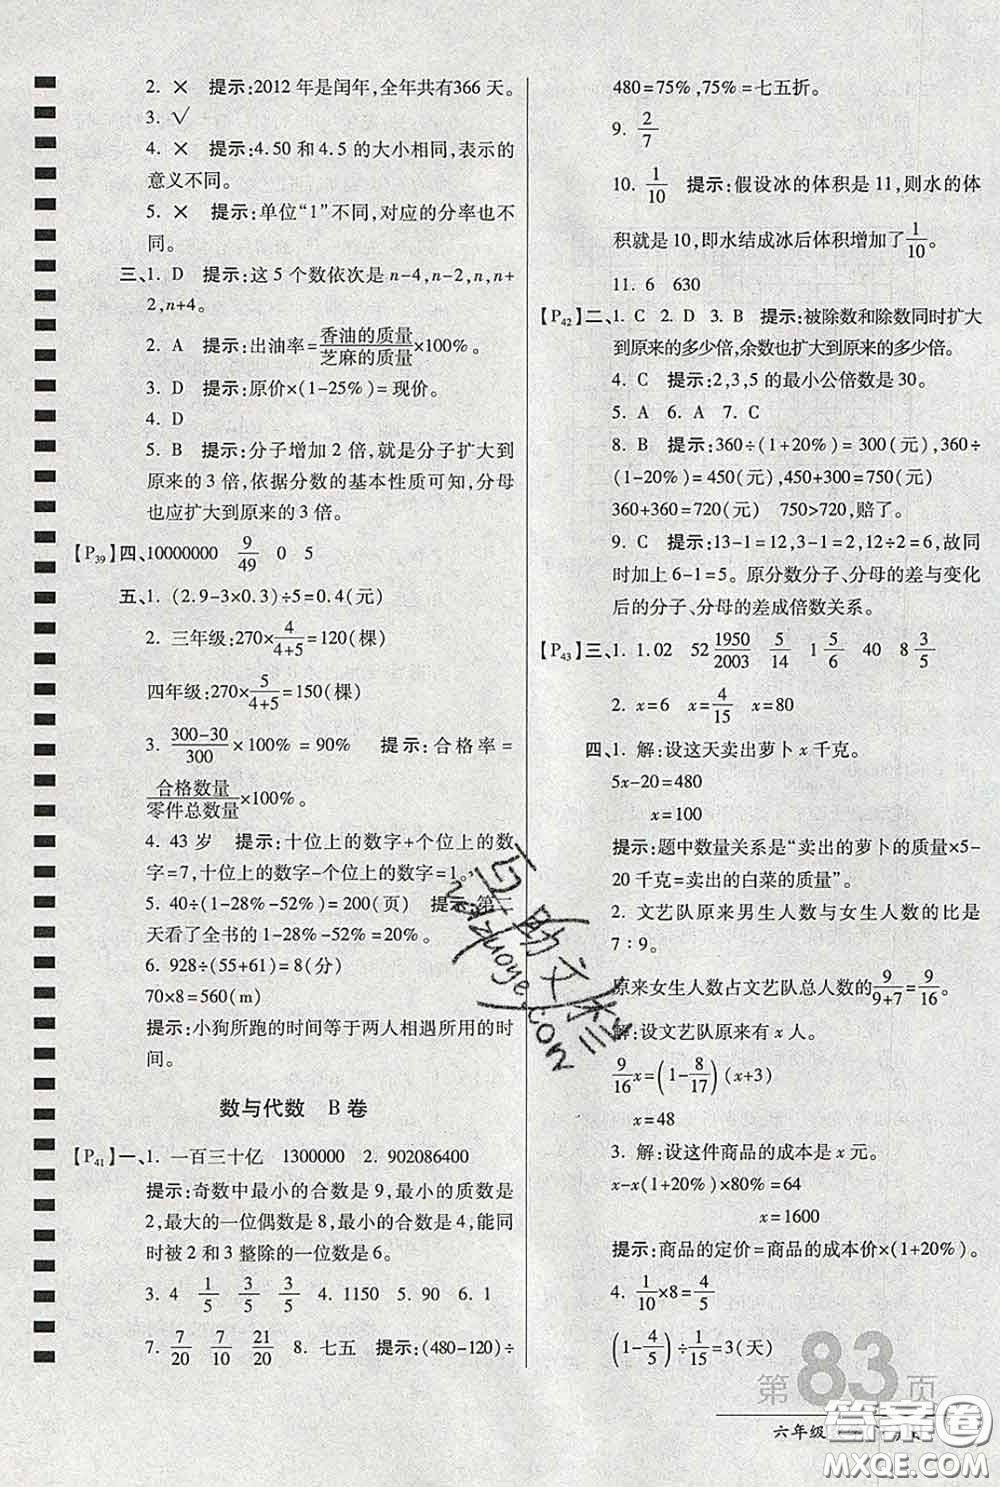 2. ✕ 提示:2012年是闰年,全年共有366天。
3. √
4. ✕ 提示:4.50和4.5的大小相同,表示的
意义不同。
5. ✕ 提示:单位“1”不同,对应的分率也不
同。
三、1. D 提示:这5个数依次是n-4,n-2,n,n+
2,n+4。
2. A 提示:出油率=香油的质量/芝麻的质量×100%。
3. D 提示:原价×(1-25%)=现价。
4. D
5. B 提示:分子增加2倍,就是分子扩大到
原来的3倍,依据分数的基本性质可知,分母
也应扩大到原来的3倍。
【P39】四、10000000 9/49 0 5
五、1. (2.9-3×0.3)÷5=0.4(元)
2. 三年级:270×4/(4+5)=120(棵)
四年级:270×5/(4+5)=150(棵)
3. (300-30)/300×100%=90% 提示:合格率=
合格数量/零件总数量×100%。
4. 43岁 提示:十位上的数字+个位上的数
字=7,十位上的数字-个位上的数字=1。
5. 40÷(1-28%-52%)=200(页) 提示:第三
天看了全书的1-28%-52%=20%。
6. 928÷(55+61)=8(分)
70×8=560(m)
提示:小狗所跑的时间等于两人相遇所用的时
间。
数与代数 B卷
【P41】一、1. 一百三十亿 1300000 2. 902086400
提示:奇数中最小的合数是9,最小的质数是
2,最大的一位偶数是8,最小的合数是4,能同
时被2和3整除的一位数是6。
3. 4 1/5 3/5 3/5 4. 1150 5. 90 6. 1
7. 7/20 7/10 21/20 8. 七五 提示:(480-120)÷
480=75%,75%=七五折。
9. 2/7
10. 1/10 提示:假设冰的体积是11,则水的体
积就是10,即水结成冰后体积增加了1/10。
11. 6 630
【P42】二、1. C 2. D 3. B 提示:被除数和除数同时扩大
到原来的多少倍,余数也扩大到原来的多少倍。
4. C 提示:2,3,5的最小公倍数是30。
5. A 6. A 7. C
8. B 提示:360÷(1+20%)=300(元),360÷
(1-20%)=450(元),450+300=750(元)
360+360=720(元) 750>720,赔了。
9. C 提示:13-1=12,3-1=2,12÷2=6,故同
时加上6-1=5。原分数分子、分母的差与变化
后的分子、分母的差成倍数关系。
【P43】三、1. 1.02 52 1950/2003 5/14 1 5/6 40 8 3/5
2. x=6 x=4/15 x=80
四、1. 解:设这天卖出萝卜x千克。
5x-20=480
x=100
提示:题中数量关系是“卖出的萝卜的质量×5-
20千克=卖出的白菜的质量”。
2. 文艺队原来男生人数与女生人数的比是
7∶9。
原来女生人数占文艺队总人数的9/(9+7)=9/16。
解:设文艺队原来有x人。
9/16x=(1-8/17)(x+3)
x=48
3. 解:设这件商品的成本是x元。
x-x(1+20%)×80%=64
x=1600
提示:商品的定价=商品的成本价×(1+20%)。
4. 1/10×8=4/5
(1-4/5)÷1/15=3(天)
第83页
六年级
答案卷
MXQE.COM